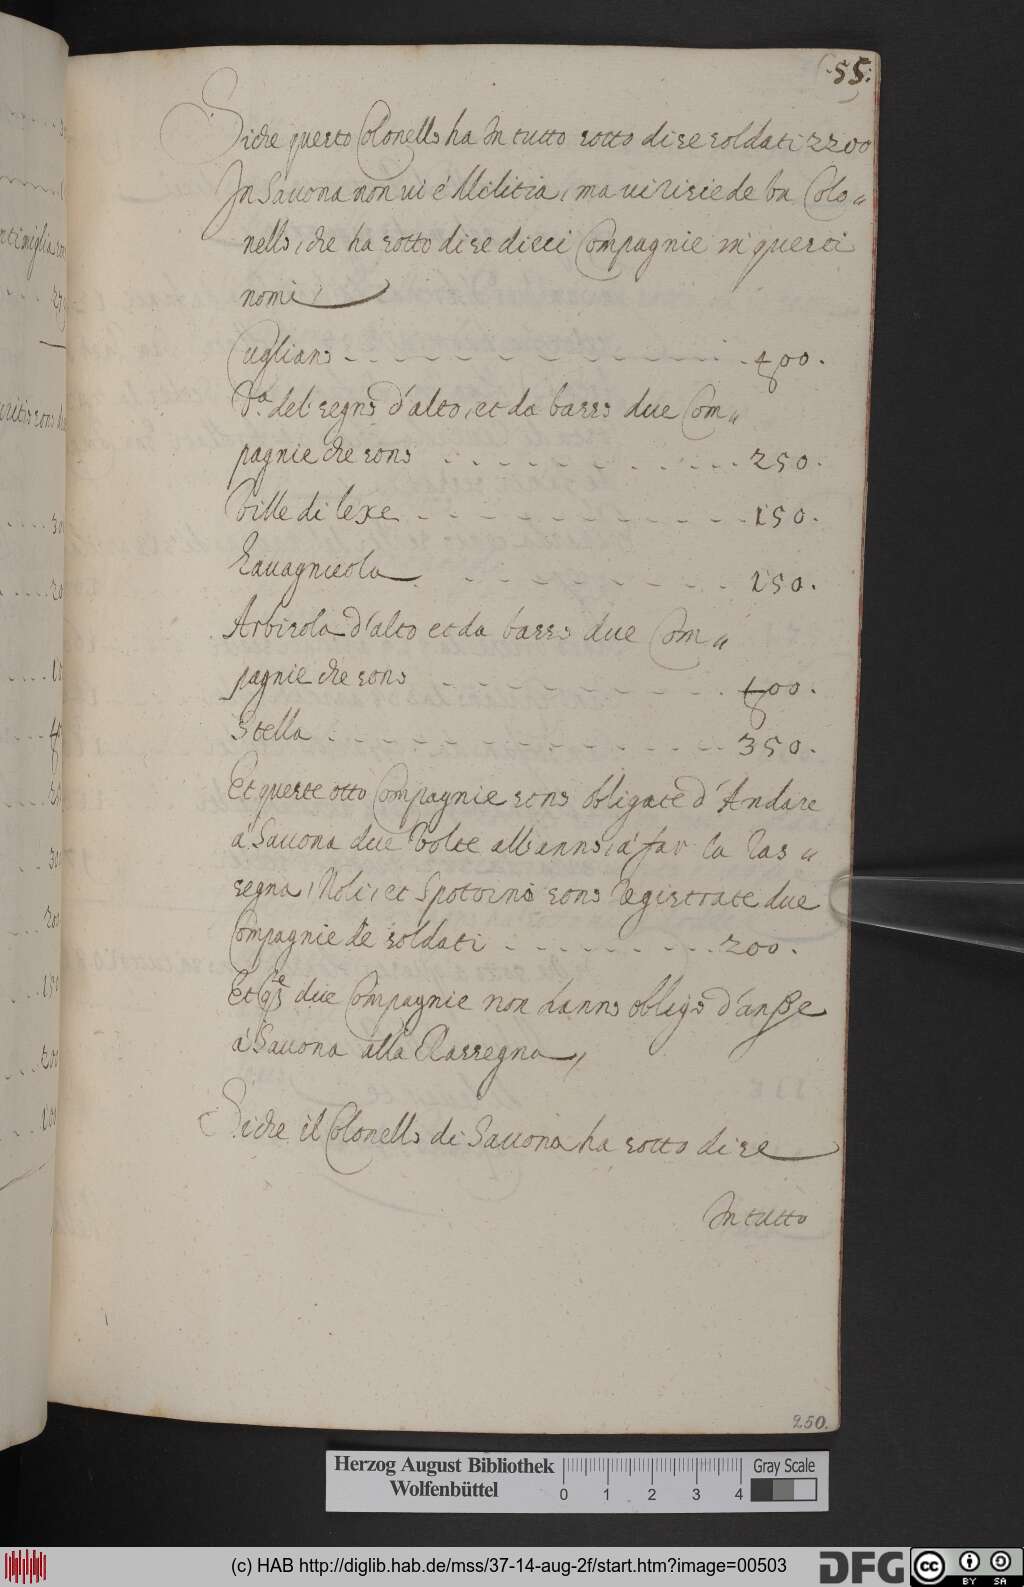 55.
Siche questo Colonello ha In tutto sotto di se soldati 2200
In Sauona non ui é Militia, ma ui risiede un Colo„
nello, che ha sotto di se dieci Compagnie in questi
nomi
Cugliano 400.
V.a del segno d'alto, et da basso due Com„
pagnie che sono 250.
Ville di lexe 150.
Lauagnieola 250.
Arbisola d'alto et da basso due Com„
pagnie che sono 400.
Stella 350.
Et queste otto Compagnie sono obligate d'Andare
á Sauona due Volte all'anno, á far la Ras„
segna, Noli, et Spotorno sono Registrate due
Compagnie de soldati 200.
Et q.ste due Compagnie non hanno obligo d'
á Sauona alla Rassegna,
Siche il Colonello di Sauona ha sotto di se
In tutto
250.
Herzog August Bibliothek
Wolfenbüttel
0 1 2 3 4
Gray Scale
(c) HAB http://diglib.hab.de/mss/37-14-aug-2f/start.htm?image=00503
DFG
cc BY SA